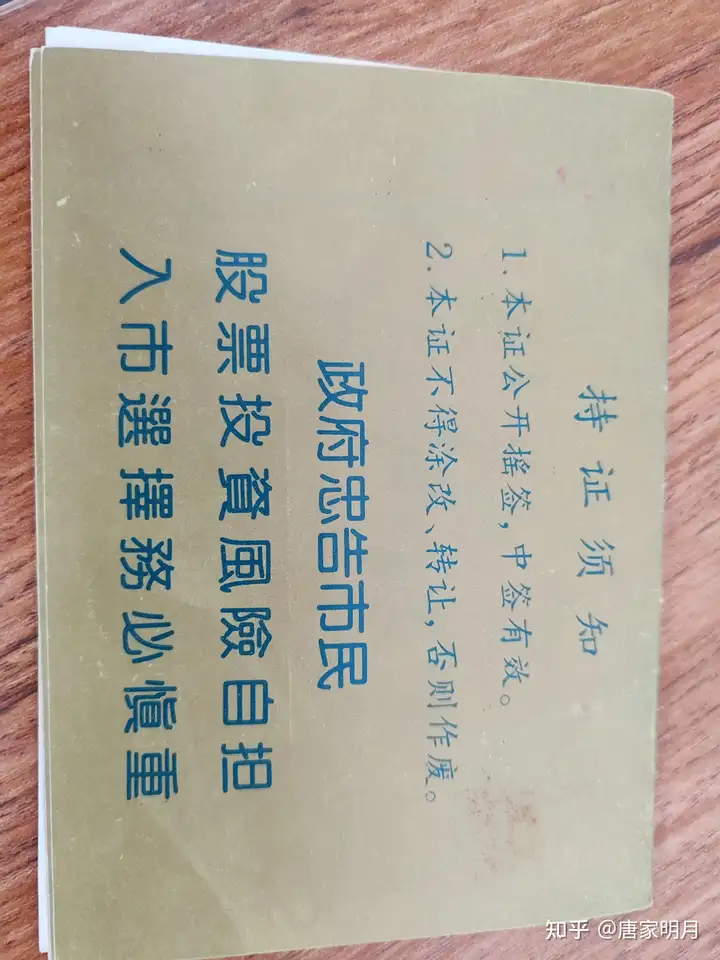 持证须知
1.本证公开摇签,中签有效。
2.本证不得涂改、转让,否则作废。
政府忠告市民
股票投資風險自担
入市選擇務必慎重
知乎 @唐家明月